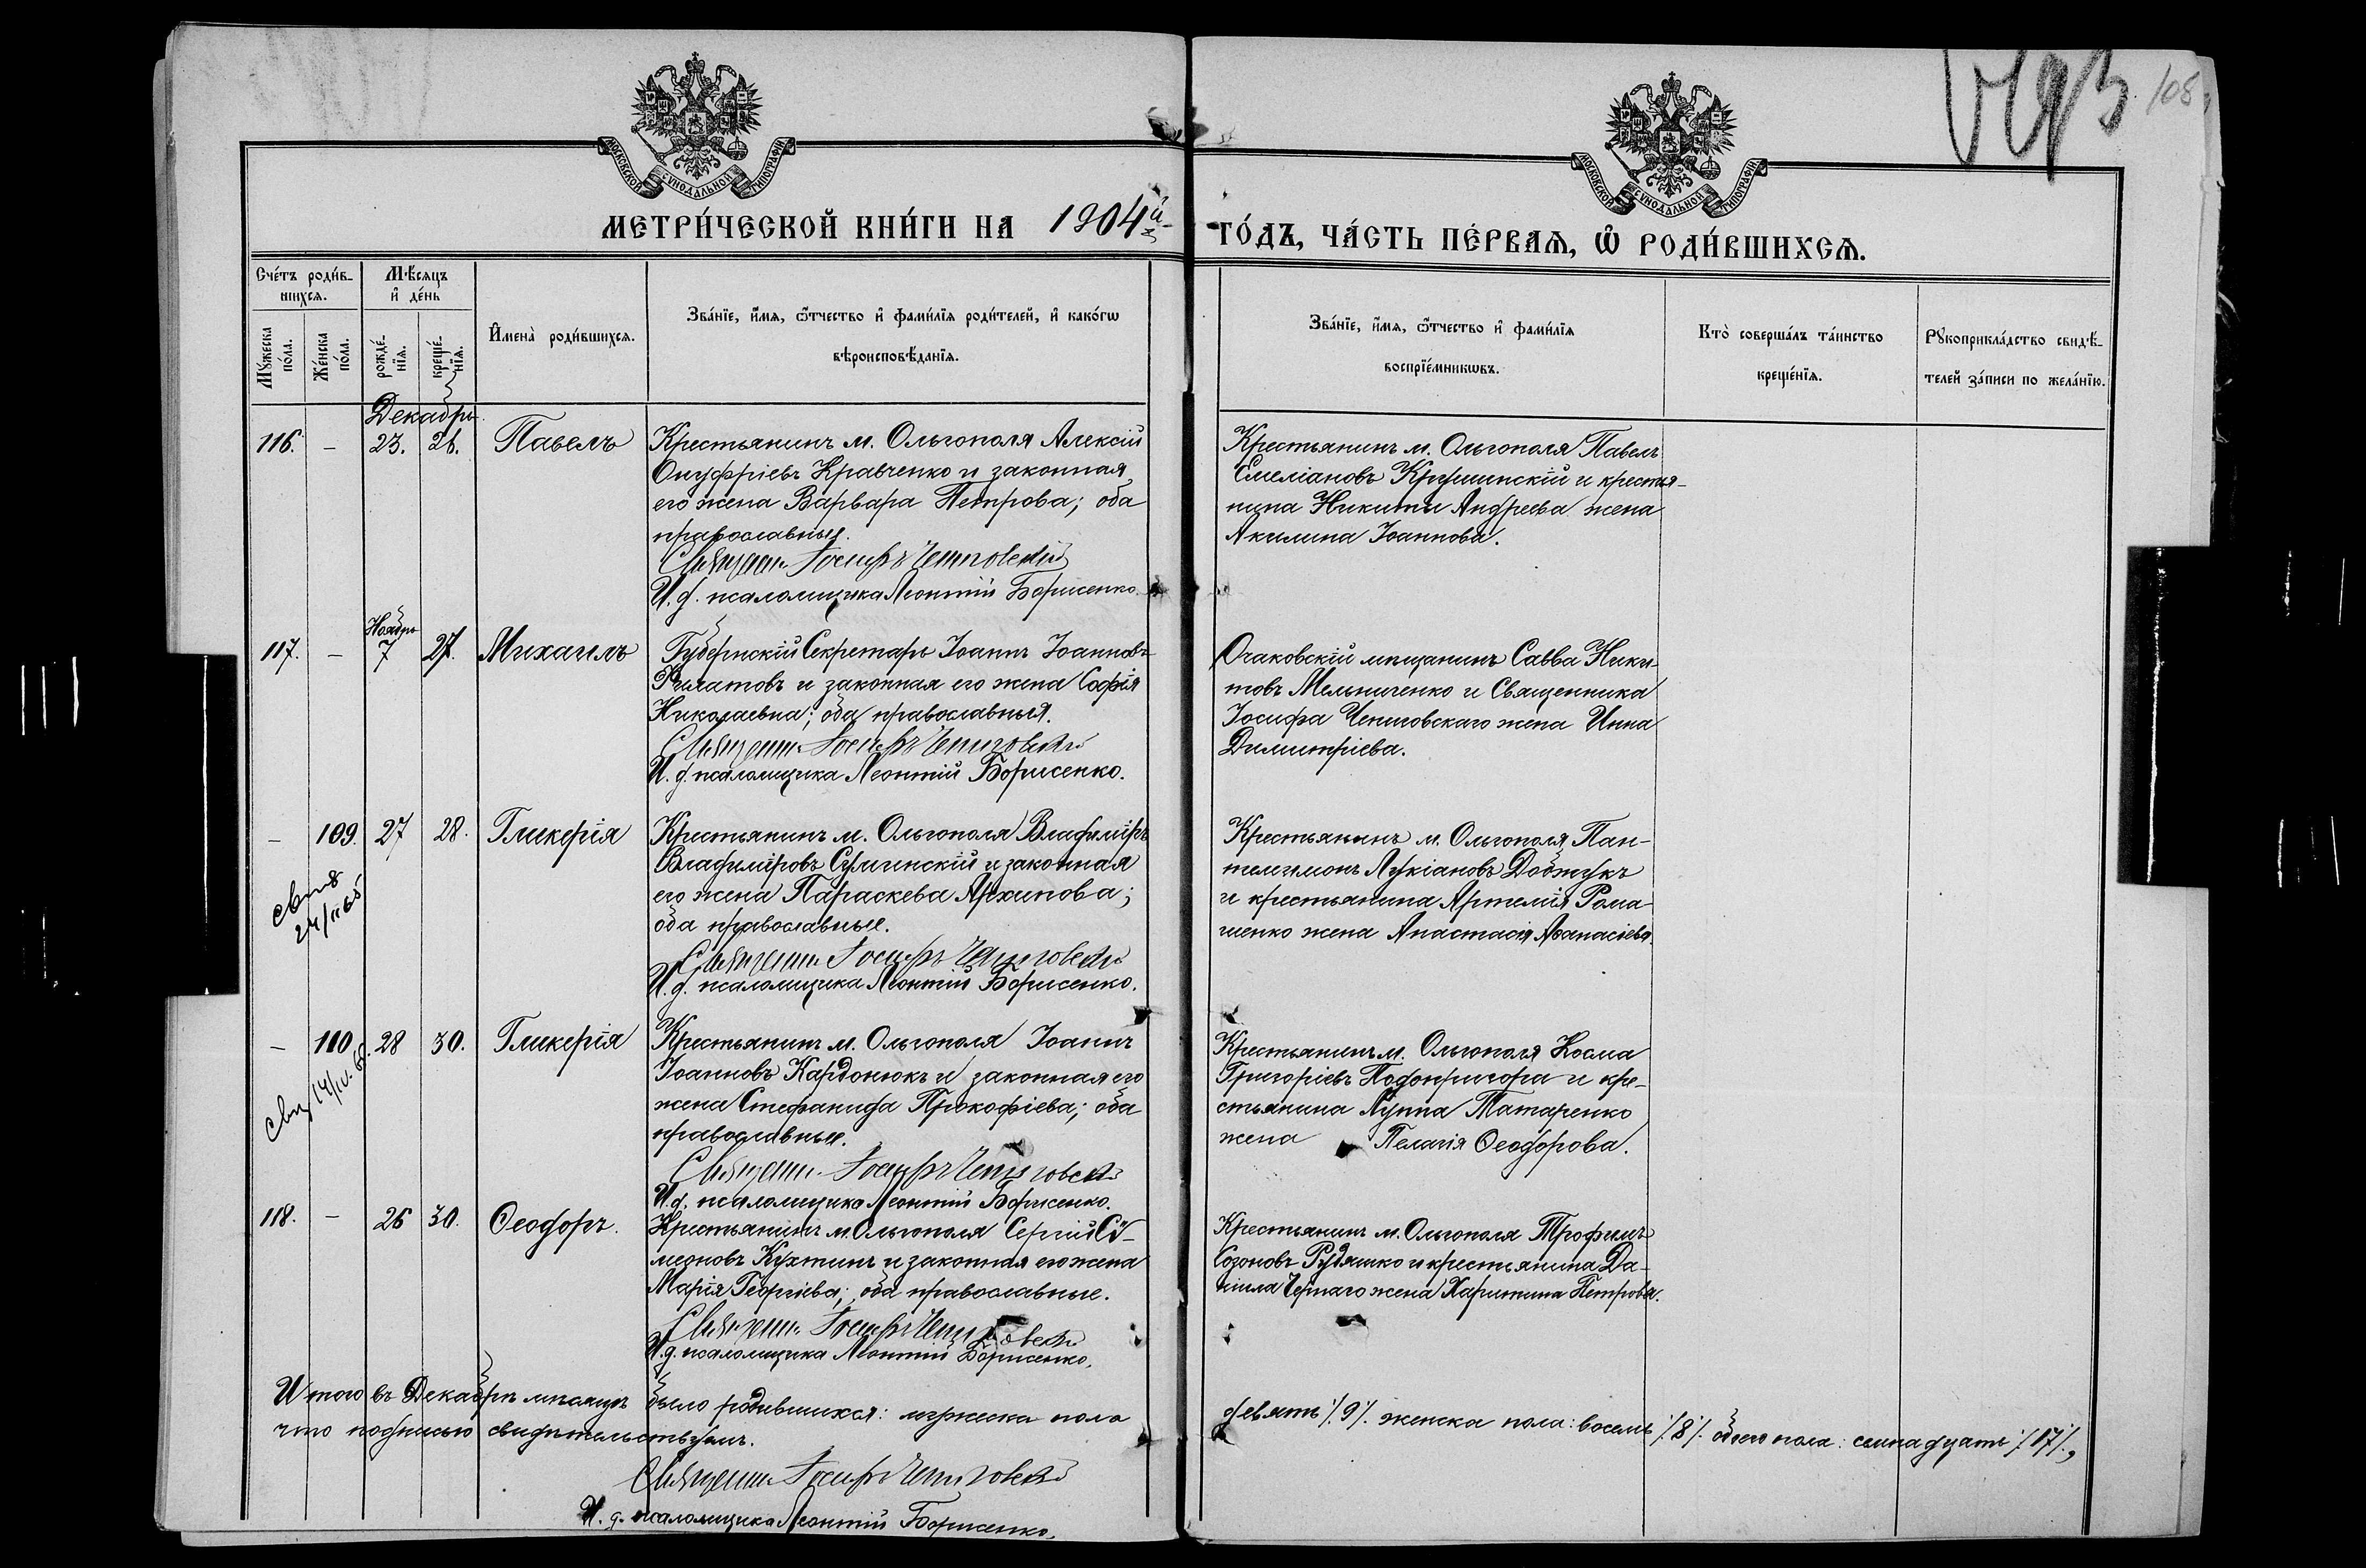 МОСКОВСКОЙ СѴНОДАЛЬНОЙ ТИПОГРАФІИ
МОСКОВСКОЙ СѴНОДАЛЬНОЙ ТИПОГРАФІИ
108
МЕТРИ́ЧЕСКОЙ КНИ́ГИ НА 1904й ГО́ДЪ, ЧА́СТЬ ПЕ́РВАѦ, Ѽ РОДИ́ВШИХСѦ.
Сче́тъ роди́в-
шихсѧ.
Мѣ́сѧцъ
и҆ де́нь
Мꙋ́жеска
по́ла.
Же́нска
по́ла.
рожде́-
нїѧ.
креще́-
нїѧ.
И҆мена̀ роди́вшихсѧ.
Зва́нїе, и҆́мѧ, ѻ҆́тчество и҆ фами́лїѧ роди́телей, и҆ како́гѡ
вѣроисповѣ́данїѧ.
Зва́нїе, и҆́мѧ, ѻ҆́тчество и҆ фами́лїѧ
воспрїе́мникѡвъ.
Кто̀ соверша́лъ та́инство
креще́нїѧ.
Рꙋкоприкла́дство свидѣ́-
телей за́писи по жела́нїю.
Декабрь
116. – 23. 26. Павелъ
Крестьянинъ м. Ольгополя Алексій
Онуфріевъ Кравченко и законная
его жена Варвара Петрова; оба
православные.
Священн. Іосифъ Чениговскій
И. д. псаломщика Леонтій Борисенко.
Крестьянинъ м. Ольгополя Павелъ
Емеліановъ и крестья-
нина Никиты Андреева жена
Акилина Іоаннова.
Ноябрь
117. – 7 27. Михаилъ
Губернскій Секретарь Іоаннъ Іоанновъ
Филатовъ и законная его жена Софія
Николаевна; оба православныя.
Священн. Іосифъ Чениговскій
И. д. псаломщика Леонтій Борисенко.
Очаковскій мещанинъ Савва Ники-
товъ Мельниченко и Священника
Іосифа Чениговскаго жена Инна
Димитріева.
– 109. 27 28. Гликерія
Крестьянинъ м. Ольгополя Владиміръ
Владиміровъ Сулинскій и законная
его жена Параскева Архипова;
оба православные.
Священн. Іосифъ Чениговскій
И. д. псаломщика Леонтій Борисенко.
Крестьянинъ м. Ольгополя Пан-
телеимонъ Лукіановъ Довжукъ
и крестьянина Артемія Рома-
ненко жена Анастасія Аѳанасіева.
24/II 65
– 110. 28 30. Гликерія
Крестьянинъ м. Ольгополя Іоаннъ
Іоанновъ Кардонюкъ и законная его
жена Стефанида Прокофіева; оба
православные.
Священн. Іосифъ Чениговскій
И. д. псаломщика Леонтій Борисенко.
Крестьянинъ м. Ольгополя Косма
Григоріевъ Подопригора и кре-
стьянина Луппа Татаренко
жена Пелагія Ѳеодорова.
14/IV.
118. – 26 30. Ѳеодоръ.
Крестьянинъ м. Ольгополя Сергій Сѵ-
меоновъ Кухтинъ и законная его жена
Марія Георгіева; оба православные.
Священн. Іосифъ Чениговскій
И. д. псаломщика Леонтій Борисенко.
Крестьянинъ м. Ольгополя Трофимъ
Созоновъ Рудяшко и крестьянина Да-
ніила Чернаго жена Харитина Петрова.
Итого въ Декабрѣ мѣсяцѣ было родившихся: мужеска пола девять /9/. женска пола: восемь /8/. обоего пола: семнадцать /17/.,
что подписью свидѣтельствуемъ.
Священн. Іосифъ Чениговскій
И. д. псаломщика Леонтій Борисенко.